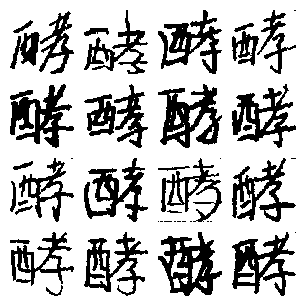 酵酵酵酵
酵酵酵酵
酵酵酵酵
酵酵酵酵